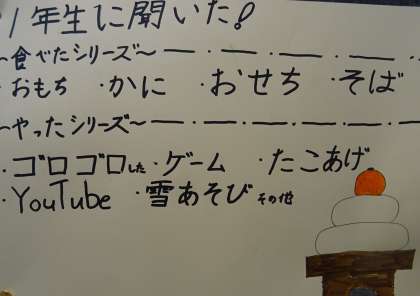 1年生に聞いた!
～食べたシリーズ～
・おもち ・かに ・おせち ・そば
～やったシリーズ～
・ゴロゴロした ・ゲーム ・たこあげ
・YouTube ・雪あそび その他